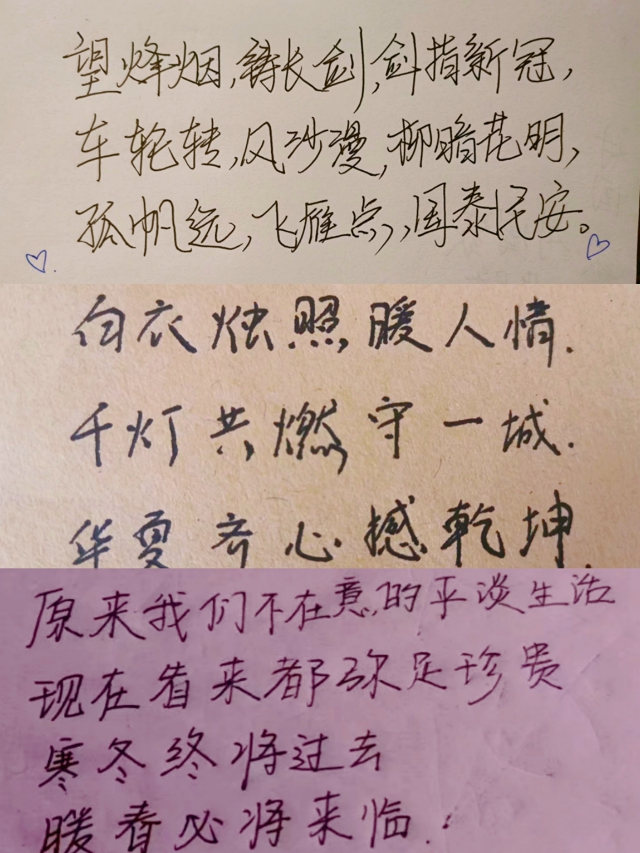 望烽烟,铸长剑,剑指新冠,
车轮转,风沙漫,柳暗花明,
孤帆远,飞雁点,国泰民安。
白衣烛照暖人情.
千灯共燃守一城.
华夏齐心撼乾坤.
原来我们不在意的平淡生活
现在看来都弥足珍贵
寒冬终将过去
暖春必将来临.